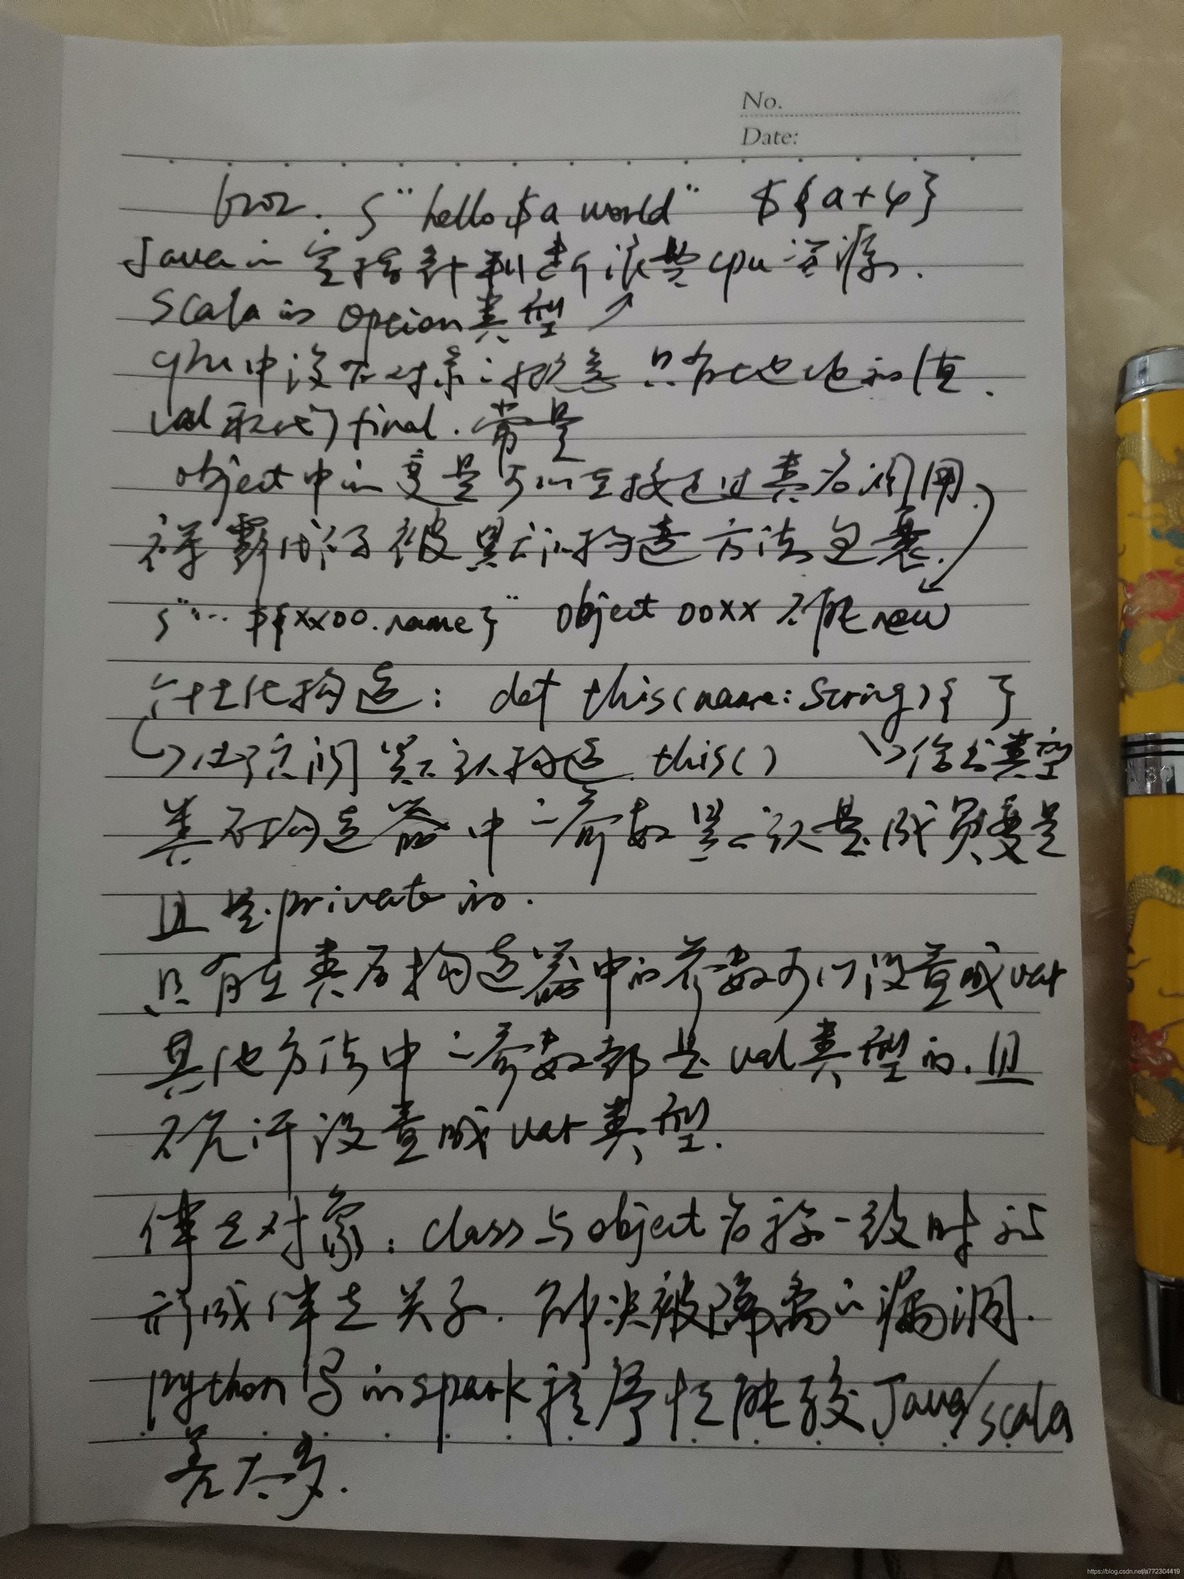 No.
Date:
6202. s"hello $a world" ${a+4}
Java的空指针判断浪费cpu资源.
Scala的Option类型
cpu中没有对象的概念 只有地址和值.
val取代了final.常量
object中的变量可以直接通过类名调用.
裸露的代码被默认的构造方法包裹.
s"... ${xxoo.name}" object ooxx 不能new
个性化构造: def this(name:String){ }
必须调默认构造 this()
类名构造器中的参数默认是成员变量
且是private的.
只有在类名构造器中的参数可以设置成var
其他方法中的参数都是val类型的.且
不允许设置成var类型.
伴生对象: class与object名称一致时
形成伴生关系. 解决被隔离的漏洞.
python写的spark程序性能较Java/scala
差太多.
https://blog.csdn.net/a772304419